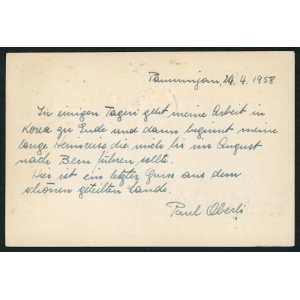 Panmunjon, 24.4.1958
In einigen Tagen geht meine Arbeit in
Korea zu Ende und dann beginnt meine
lange Heimreise die mich bis im August
nach Bern führen sollte.
Hier ist ein letzter Gruss aus dem
schönen geteilten Lande.
Paul Oberli